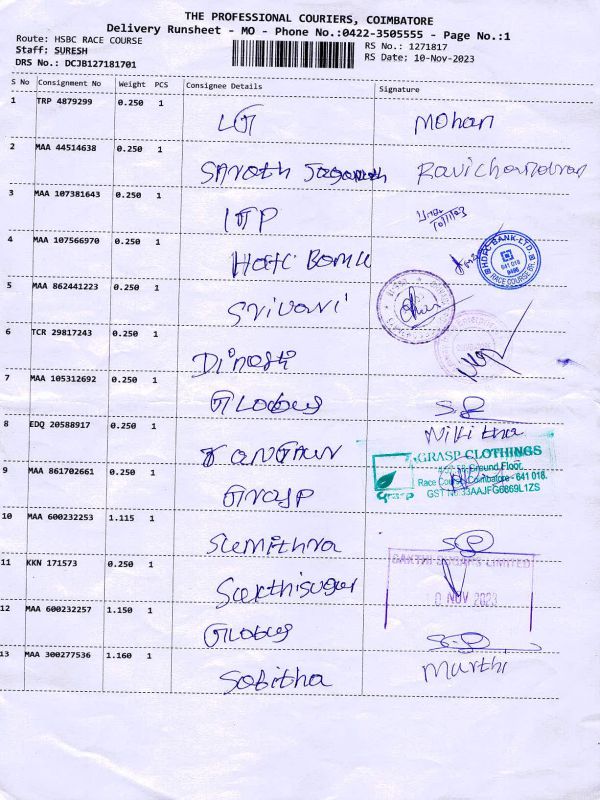 THE PROFESSIONAL COURIERS, COIMBATORE
Delivery Runsheet - MO - Phone No.:0422-3505555 - Page No.:1
Route: HSBC RACE COURSE
RS No.: 1271817
Staff: SURESH
RS Date; 10-Nov-2023
DRS No.: DCJB127181701
S No Consignment No Weight PCS Consignee Details Signature
1 TRP 4879299 0.250 1
LG Mohan
2 MAA 44514638 0.250 1
Sarath Ravichandran
3 MAA 107381643 0.250 1
ITP 10/11/23
4 MAA 107566970 0.250 1
Hdfc Bank
HDFC BANK LTD.
641 018
RACE COURSE BR.
5 MAA 862441223 0.250 1
Srivari
6 TCR 29817243 0.250 1
Dinesh
7 MAA 105312692 0.250 1
Globus
8 EDQ 20588917 0.250 1
Nikitha
GRASP CLOTHINGS
Ground Floor,
Race Course, Coimbatore - 641 018.
GST No:33AAJFG6869L1ZS
grasp
9 MAA 861702661 0.250 1
Grasp
10 MAA 600232253 1.115 1
Sumithra
11 KKN 171573 0.250 1
Sakthisugar
SAKTHI SUGARS LIMITED
10 NOV 2023
12 MAA 600232257 1.150 1
Globus
13 MAA 300277536 1.160 1
Sabitha Murthi